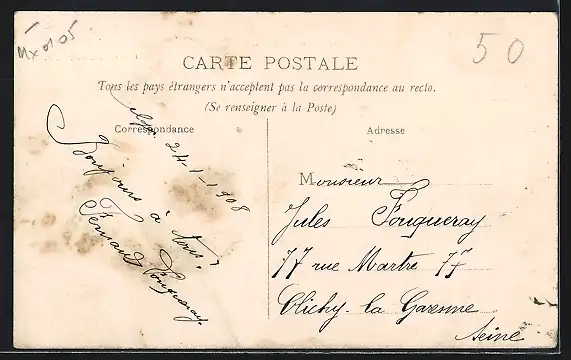 Mx 01 05
50
CARTE POSTALE
Tous les pays étrangers n'acceptent pas la correspondance au recto.
(Se renseigner à la Poste)
Correspondance
24-1-1908
Bonjours
à tous.
Fernand Fouqueray.
Adresse
Monsieur
Jules Fouqueray
77 rue Martre 77
Clichy. la Garenne
Seine